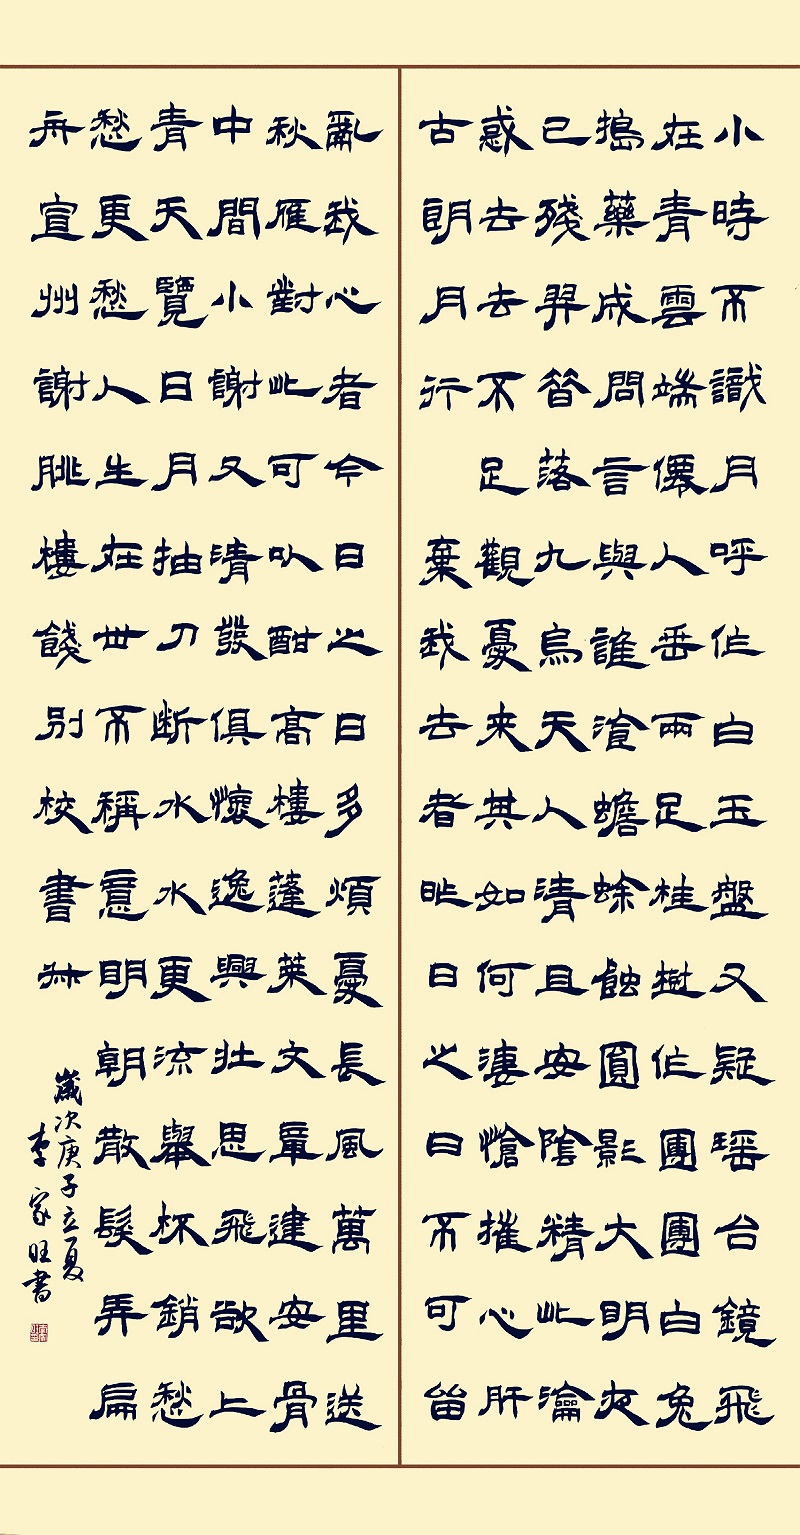 小時不識月呼作白玉盤又疑瑶台鏡飛
在青雲端僊人垂兩足桂樹作團團白兔
搗藥成問言與誰飡蟾蜍蝕圓影大明夜
已殘羿昔落九烏天人清且安陰精此淪
惑去去不足觀憂來其如何淒愴摧心肝
古朗月行 棄我去者昨日之日不可留
亂我心者今日之日多煩憂長風萬里送
秋雁對此可以酣高樓蓬萊文章建安骨
中間小謝又清發俱懷逸興壯思飛欲上
青天覽日月抽刀断水水更流舉杯銷愁
愁更愁人生在世不稱意明朝散髮弄扁
舟宣州謝朓樓餞別校書叔
歲次庚子立夏
李家旺書